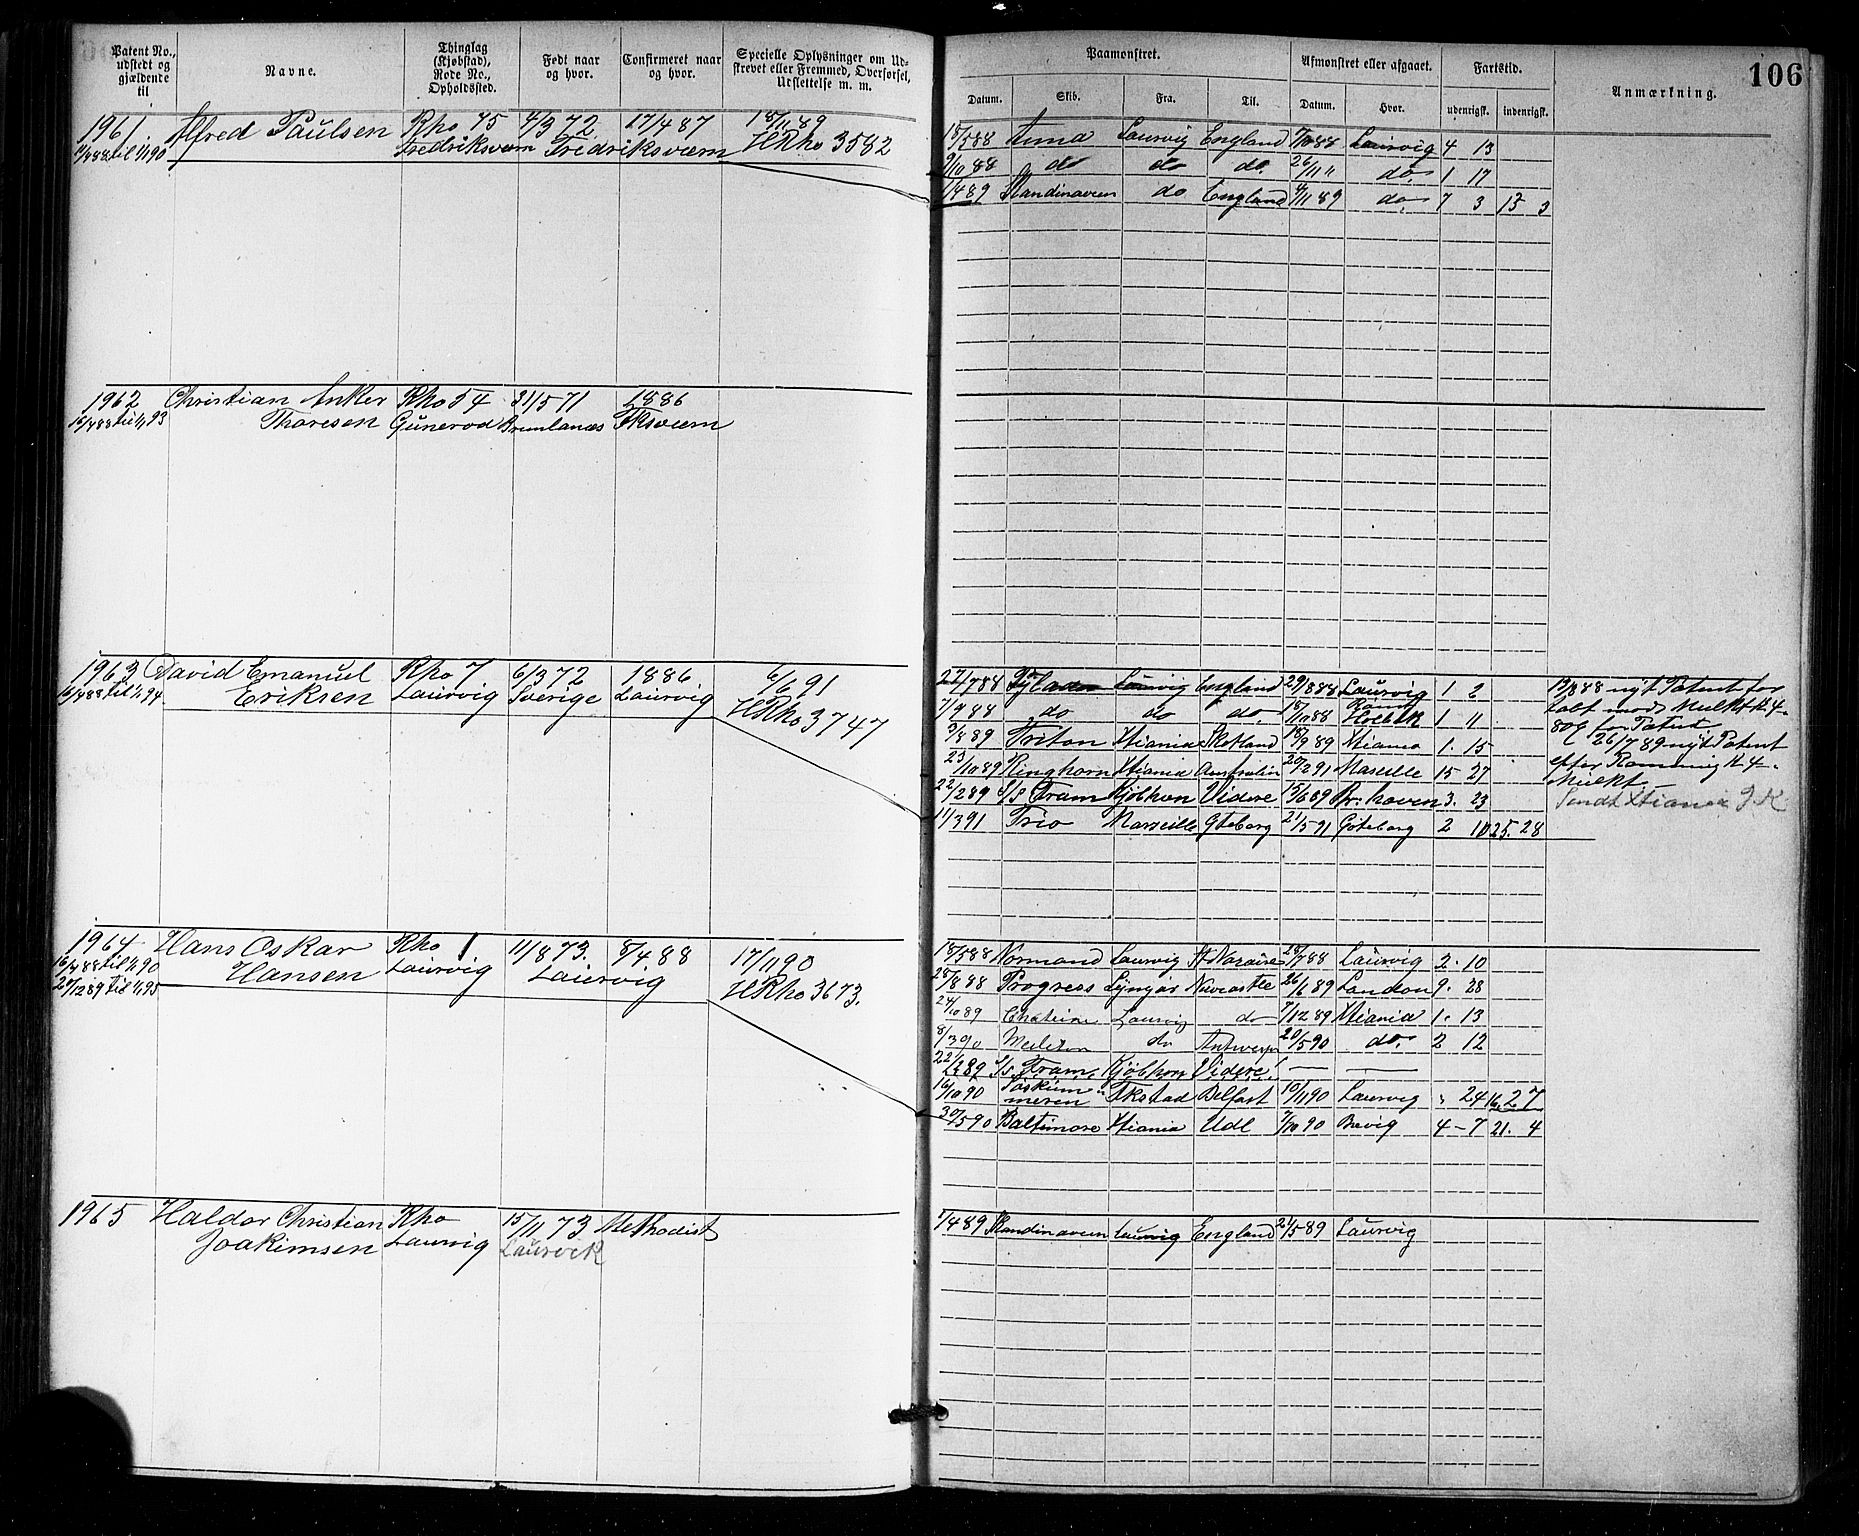 Patent No., udstedt og gjældende til
Navne.
Thinglag (Kjøbstad), Rode No., Opholdssted.
Født naar og hvor.
Confirmeret naar og hvor.
Specielle Oplysninger om Udstrevet eller Fremmed, Overførsel, Udslettelse m. m.
Paamønstret.
Afmønstret eller afgaaet.
Fartstid.
Anmærkning.
106
Datum. Skib. Fra. Til. Datum. Hvor. udenrigsk. indenrigsk.
1961. Alfred Paulsen Rho 75 4/3 72 17/4 87 18/11 89
til 1/1 90 Fredriksværn Fredriksværn HRho 3582
15/5 88 Anna Laurvig England 88 Laurvig 4 13
9/10 88 do do do. 26/11 " do. 1 17
1/4 89 Skandinaven do England 4/11 89 do. 7 3 13 3
1962 Christian Anker Rho 54 31/5 71 1886
16/4 88 til 1/1 93 Thoresen Gunerød Brunlanæs Fksværn
1963 David Emanuel Rho 7 6/3 72 1886 6/6 91
16/4 88 til 1/1 94 Eriksen Laurvig Sverige Laurvig HRho 3747
27/7 88 Laurvig England 29/8 88 Laurvig 1 2
7/9 88 do do do. 18/10 88 Holbæk 1 11
3/8 89 Triton Xtiania Skotland 18/9 89 Xtiania 1. 15
23/10 89 Kinghorn Xtiania Australien 20/2 91 Marseille 15 27
22/2 89 S/S Fram Kjöbhvn Videre 15/6 89 Br: haven 3. 23
11/3 91 Trio Marseille Gteborg 21/5 91 Göteborg 2 10 25. 28
19/8 88 nyt Patent for
tabt mod Mulkt K. 4-
80 f for Patent
26/7 89 nyt Patent
efter Rømning K. 4-
Mulkt.
Sendt Xtiania
1964 Hans Oskar Rho 1 11/8 73. 8/4 88 17/11 90
16/4 88 til 1/1 90 Hansen Laurvig Laurvig HRho 3673.
20/12 89 til 1/1 95
18/5 88 Normand Laurvig St Nazaire 28/7 88 Laurvig 2. 10
28/8 88 Progress Lyngör Newcastle 26/6 89 London 9. 28
24/10 89 Laurvig do 7/12 89 Xtiania 1. 13
8/3 90 do Antwerpn 20/5 90 do. 2 12
22/2 89 S/s. Fram Kjöbhvn Videre!
16/10 90 Fkstad Belfast 10/11 90 Laurvig " 24 16. 27
30/5 90 Baltimore Xtiania Udl 7/10 90 Brevig 4 - 7 21. 4
1965 Haldor Christian Rho 15/11 73 Methodist
Joakimsen Laurvig Laurvik
1/4 89 Skandinaven Laurvig England 21/5 89 Laurvig